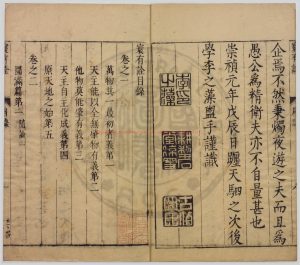 企焉不然秉燭夜遊之夫而且為
愚公為精衛夫亦不自量甚也
崇禎元年戊辰日躔天駟之次後
學李之藻盥手謹識
李印之藻
寰有詮目錄
卷之一
萬物共一最初者義第一
天主能以全無肇物有義第二
他物莫能肇有義第三
天主自主化成義第四
原天地之始第五
卷之二
圜滿篇第一
寰有詮
目錄